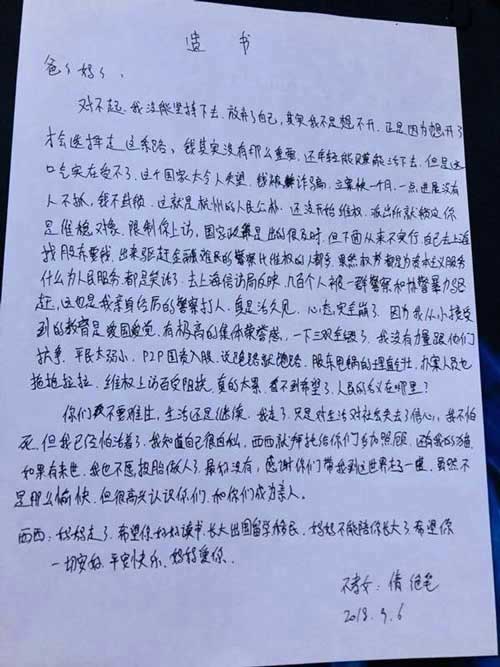 遗书
爸爸妈妈、
对不起、我没能坚持下去、放弃了自己、其实我不是想不开、正是因为想开了
才会选择走这条路、钱其实没有那么重要、还年轻能赚能活下去、但是这
口气实在受不了、这个国家太令人失望、钱被诈骗、立案快一个月、一点进展没有
人不抓、我不截桩、这就是杭州的人民公朴、还没开始维权、派出所就锁定你
是维稳对象、限制你上访、国家政策是出的很及时、但下面从来不实行、自己去上海
找股东要钱、出来驱赶金融难民的警察比维权的人都多、果然权都是为资本主义服务
什么为人民服务、都是笑话了、去上海信访局反映、几百个人被一群警察和协警暴力驱
赶、这也是我亲身经历的警察打人、真是活久见、心态完全崩了、因为我从小接受
到的教育是爱国爱党、有极高的集体荣誉感、一下三观全毁了、我没有力量跟他们
抗衡、平民太弱小、P2P国资入股、说跑路就跑路、股东甩锅的理直气壮、办案人员也
拖拖拉拉、维权上访百受阻挠、真的太累、看不到希望了、人民的名义在哪里?
你们不要难过、生活还是继续、我走了、只是对生活对社会失去了信心、我不怕
死、但我已经怕活着了、我知道自己很自私、西西就拜托给你们多加照顾、还有我的
如果有来世、我也不愿投胎做人了、最后没有、感谢你们带我到这世界走一遭、虽然不
是那么愉快、但很高兴认识你们、和你们成为亲人、
西西:妈妈走了、希望你好好读书、长大出国留学移民、妈妈不能陪你长大了、希望你
一切安好、平安快乐、妈妈爱你、
不孝女:倩 绝笔
2018.9.6